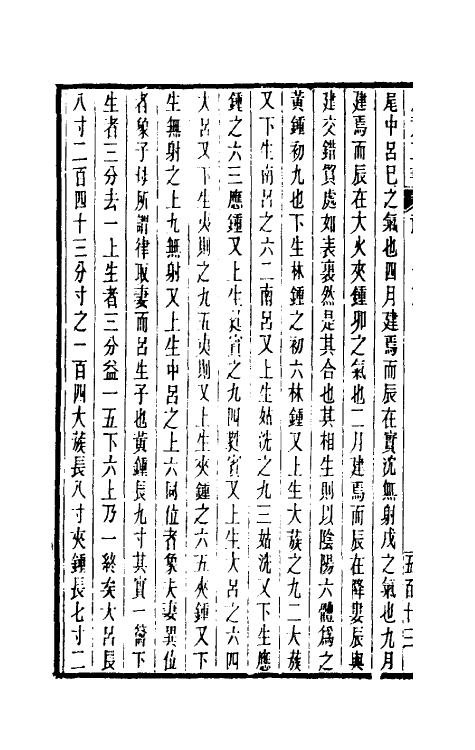 尾中呂巳之氣也四月建焉而辰在實沈無射戌之氣也九月
建焉而辰在大火夾鍾卯之氣也二月建焉而辰在降婁辰與
建交錯貿處如表裏然是其合也其相生則以陰陽六體為之
黃鍾初九也下生林鍾之初六林鍾又上生大蔟之九二大蔟
又下生南呂之六二南呂又上生姑洗之九三姑洗又下生應
鍾之六三應鍾又上生蕤賓之九四蕤賓又上生大呂之六四
大呂又下生夷則之九五夷則又上生夾鍾之六五夾鍾又下
生無射之上九無射又上生中呂之上六同位者象夫妻異位
者象子母所謂律取妻而呂生子也黃鍾長九寸其實一籥下
生者三分去一上生者三分益一五下六上乃一終矣大呂長
八寸二百四十三分寸之一百四大蔟長八寸夾鍾長七寸二